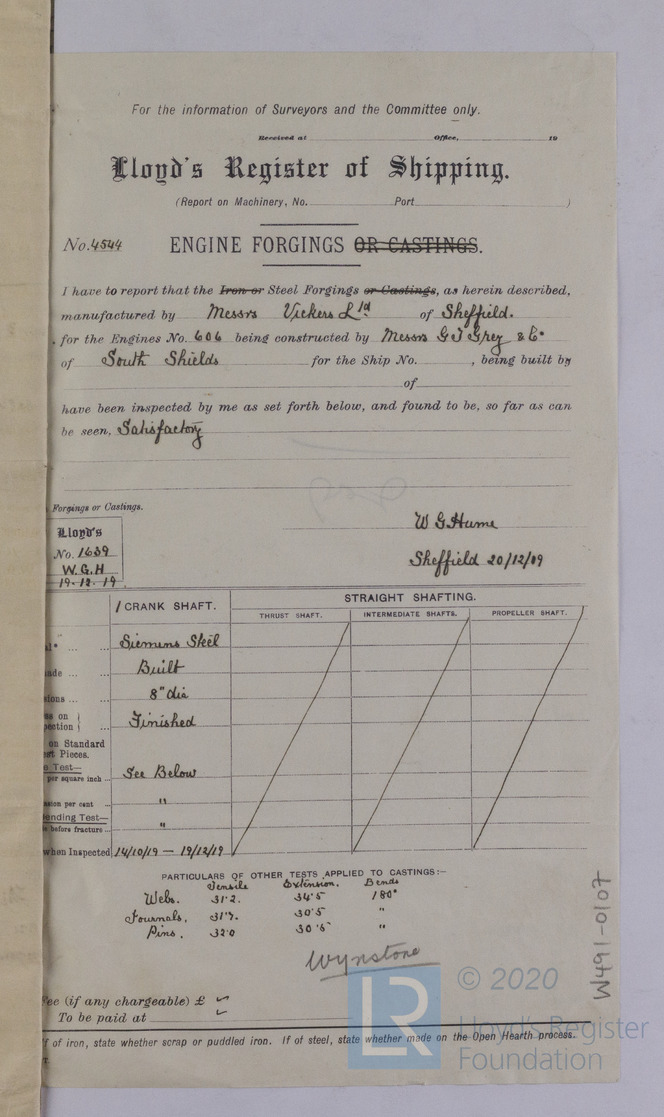 For the information of Surveyors and the Committee only.
Received at Office, 19
Lloyd's Register of Shipping.
(Report on Machinery, No. Port )
No. 4544 ENGINE FORGINGS OR CASTINGS.
I have to report that the Iron or Steel Forgings or Castings, as herein described,
manufactured by Messrs Vickers Ltd of Sheffield.
for the Engines No. 606 being constructed by Messrs G T Grey & Co
of South Shields for the Ship No. , being built by
of
have been inspected by me as set forth below, and found to be, so far as can
be seen, Satisfactory
Forgings or Castings.
W G Hume
Lloyd's
No. 1639
W.G.H
19.12.19
Sheffield 20/12/19
1 CRANK SHAFT. STRAIGHT SHAFTING.
THRUST SHAFT. INTERMEDIATE SHAFTS. PROPELLER SHAFT.
Siemens Steel
Built
8" dia
Finished
on Standard
Pieces.
Test—
per square inch ... See Below
per cent ... "
Test—
before fracture ... "
when Inspected 14/10/19 — 19/12/19
PARTICULARS OF OTHER TESTS APPLIED TO CASTINGS:—
Tensile Extension. Bends
Webs. 31.2. 34.5 180°
Journals, 31.7. 30.5 "
Pins. 32.0 30.5 "
Wynstone
W491-0107
Fee (if any chargeable) £
To be paid at
If of iron, state whether scrap or puddled iron. If of steel, state whether made on the Open Hearth process.
LR © 2020
Lloyd's Register
Foundation